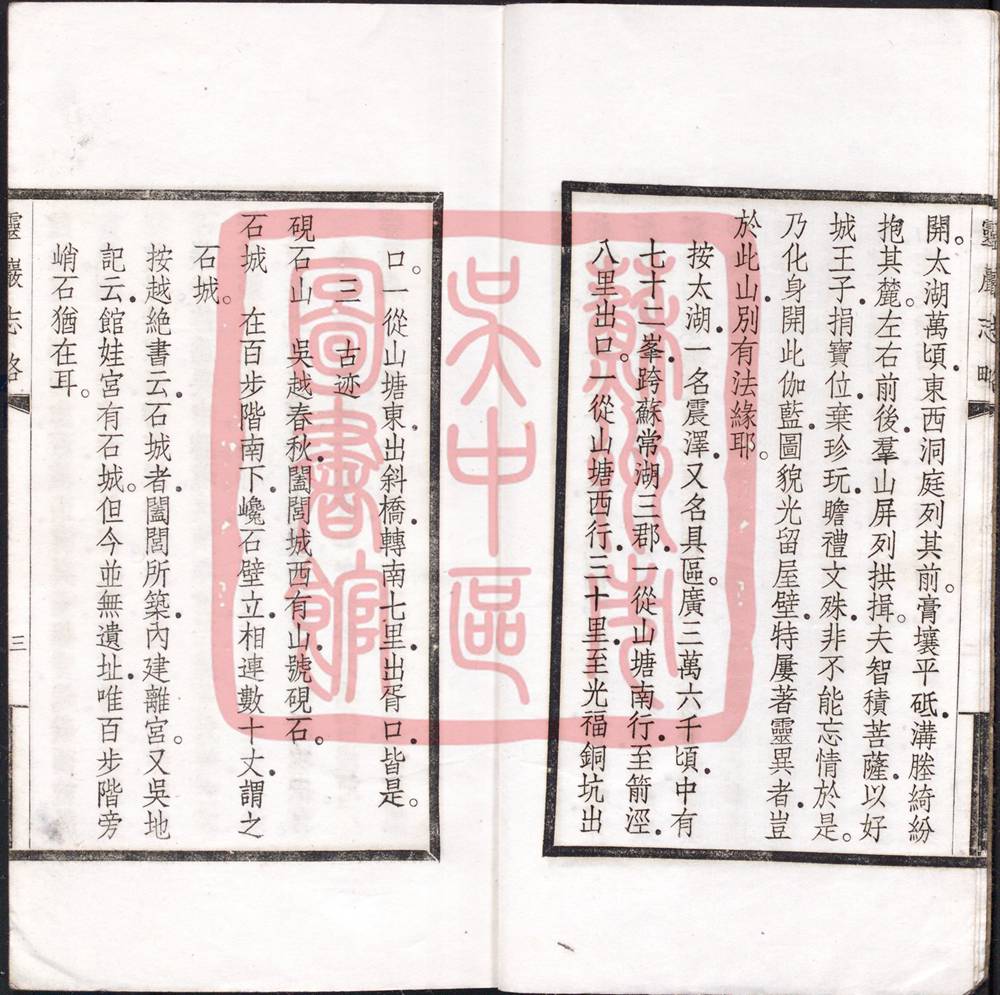 靈巖志略
開。太湖萬頃.東西洞庭列其前。膏壤平砥.溝塍綺紛
抱其麓。左右前後.羣山屏列拱揖。夫智積菩薩.以好
城王子.捐寶位.棄珍玩.瞻禮文殊.非不能忘情於是。
乃化身開此伽藍.圖貌光留屋壁.特屢著靈異者.豈
於此山.別有法緣耶。
按太湖.一名震澤.又名具區。廣三萬六千頃.中有
七十二峯.跨蘇常湖三郡.一從山塘南行.至箭涇.
八里出口。一從山塘西行.三十里.至光福銅坑出
口。一從山塘東出斜橋.轉南七里.出胥口.皆是。
三 古迹
硯石山 吳越春秋.闔閭城西有山.號硯石。
石城 在百步階南下.巉石壁立.相連數十丈.謂之
石城。
按越絶書云.石城者.闔閭所築.內建離宮。又吳地
記云.館娃宮有石城。但今並無遺址.唯百步階旁
峭石猶在耳。
靈巖志略
三
蘇州市
吳中區
圖書館